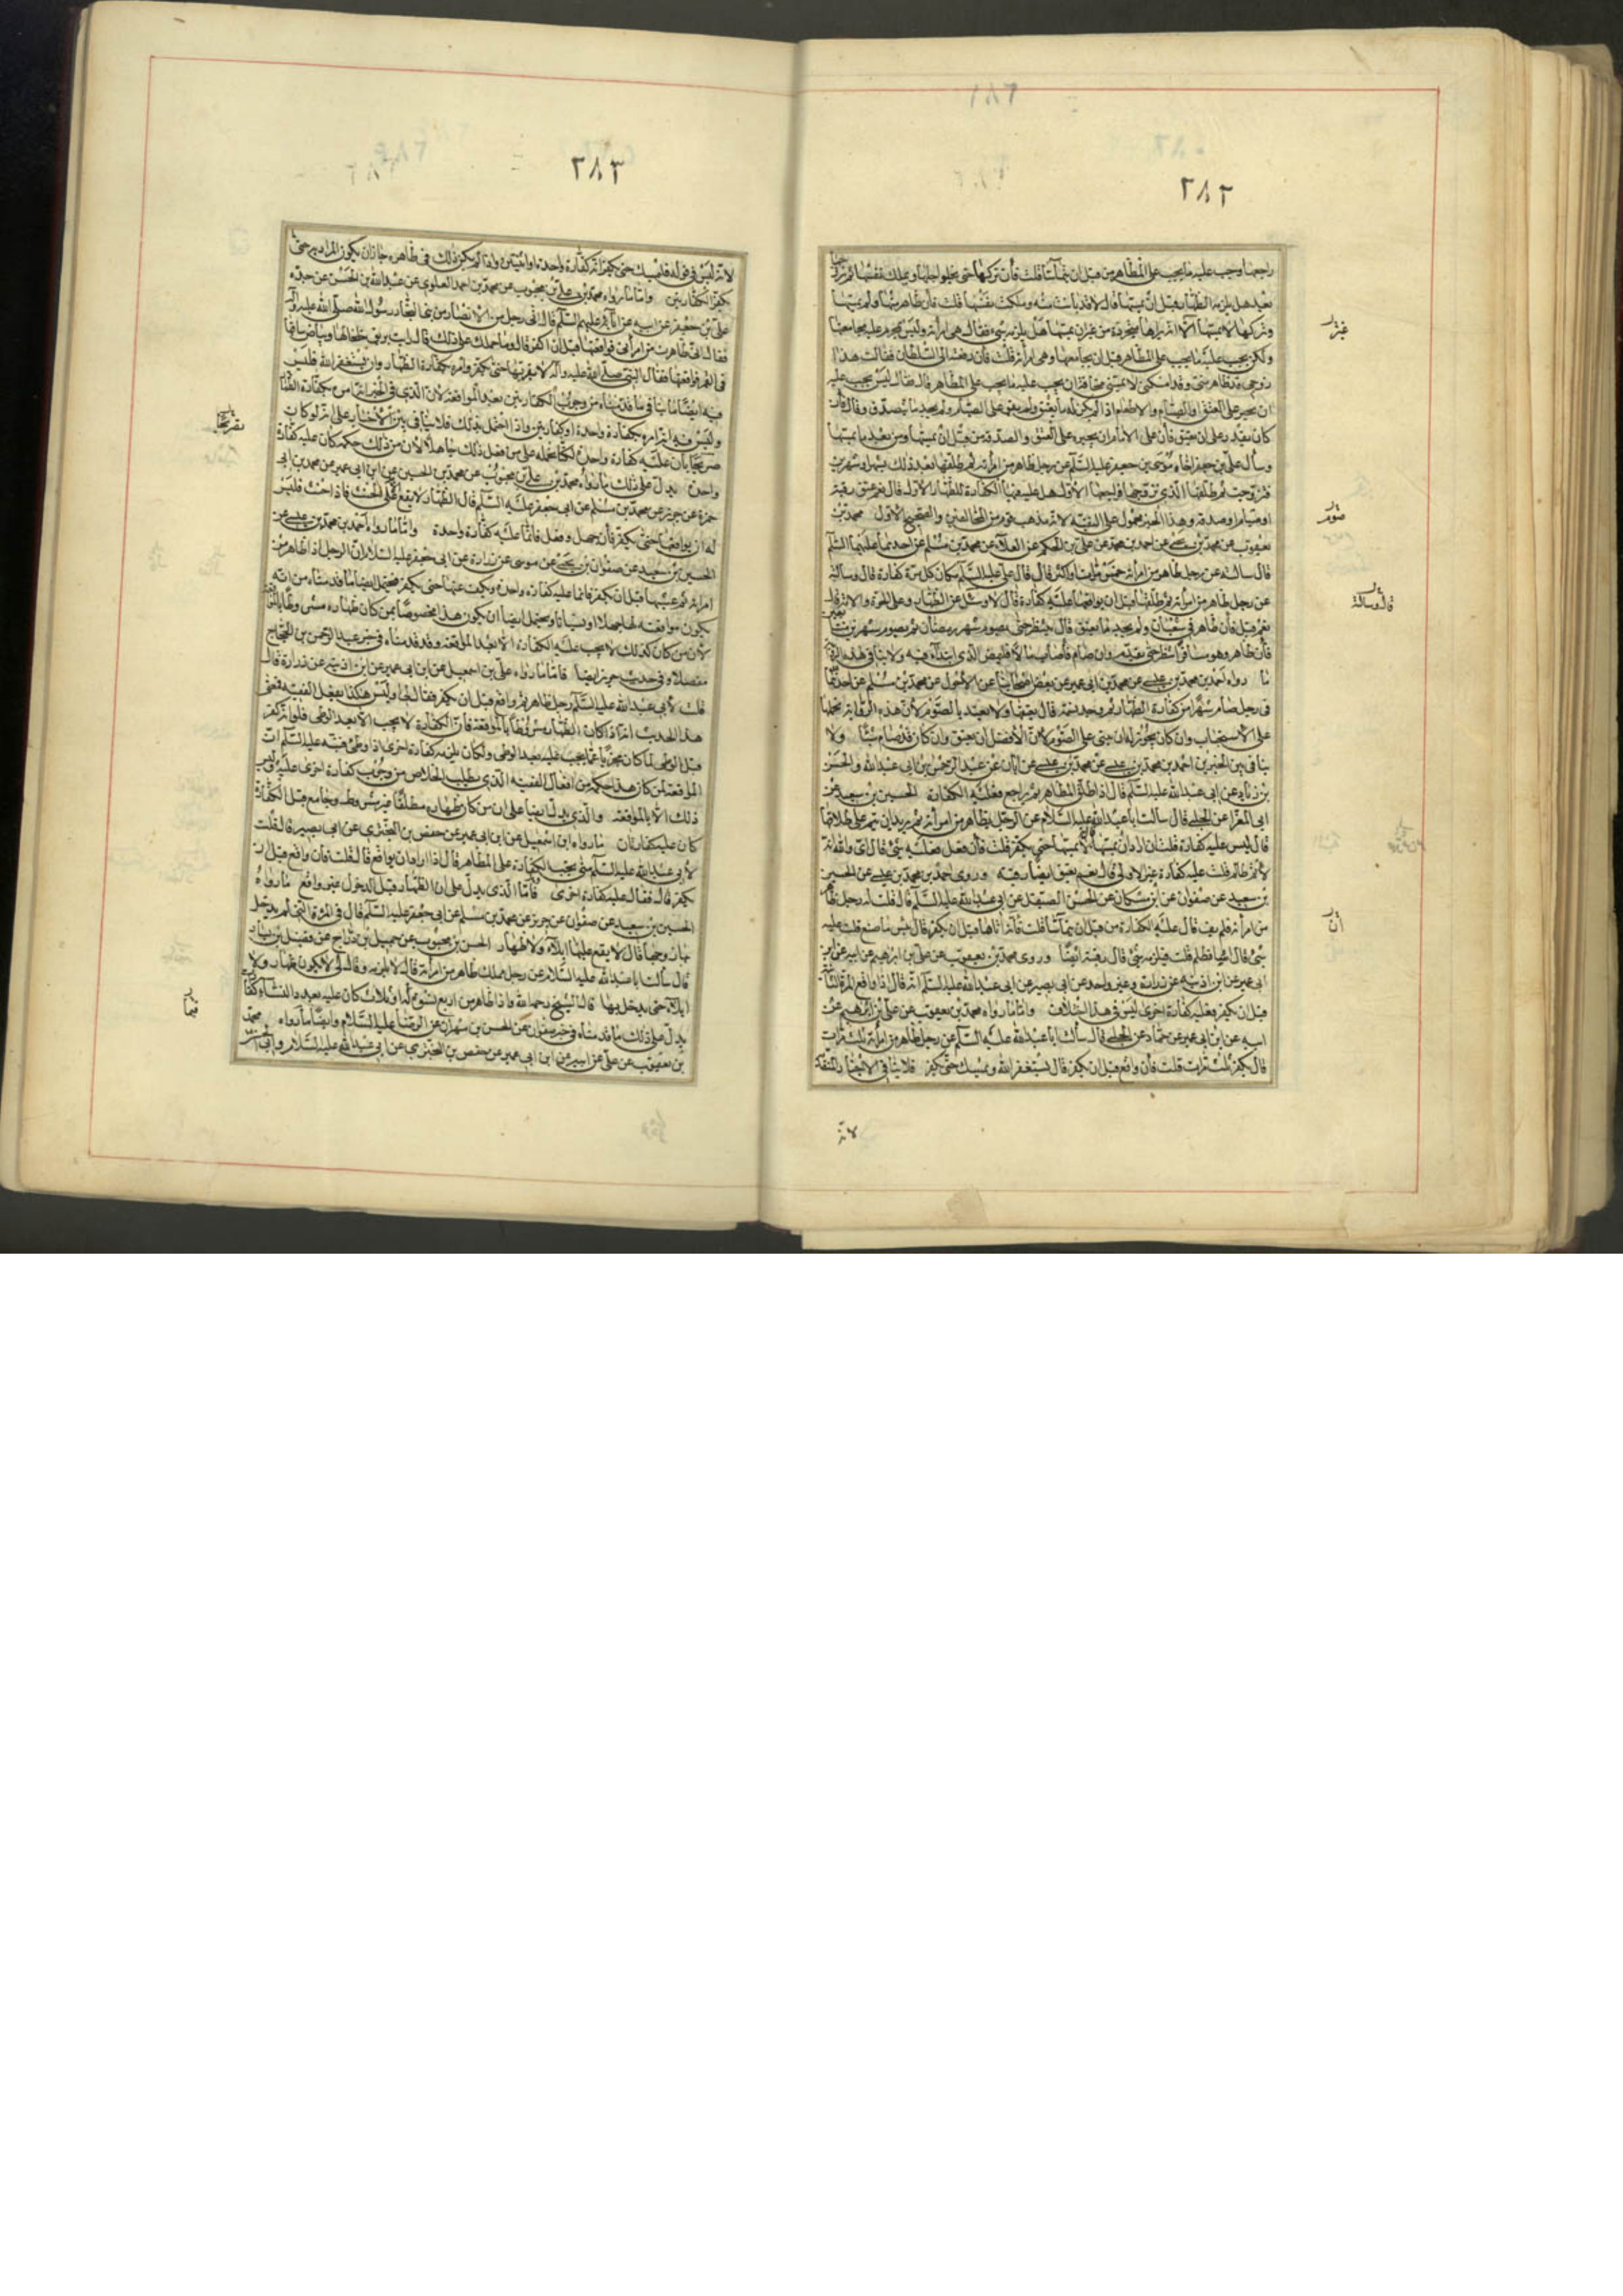 ٢٨٢
راجعها وجب عليه ما يجب على المظاهر من قبل ان يتماسا قلت فأن تركها حتى يخلو اجلها ويملك نفسها ثم تزوجها
بعد هل يلزمه الظهار قبل ان يمسها قال لا قد بانت منه وملكت نفسها قلت فأن ظاهر منها ولم يمسها
وتركها لا يمسها الا انه يراها متجردة من غير ان يمسها هل يلزمه شئ فقال هى امرأته وليس يحرم عليه مجامعتها
ولكن يجب عليه ما يجب على المظاهر قبل ان يجامعها وهى امرأته قلت فأن رفعته الى السلطان فقالت هذا
زوجى قد ظاهر منى وقد امسكنى لا يمسنى مخافة ان يجب عليه ما يجب على المظاهر قال فقال ليس يجب عليه
ان يجبر على العتق والصيام والاطعام اذا لم يكن له ما يعتق ولم يقو على الصيام ولم يجد ما يتصدق وقال فأن
كان يقدر على ان يعتق فأن على الامام ان يجبره على العتق والصدقة من قبل ان يمسها ومن بعد ما يمسها
وسأل على بن جعفر اخاه موسى بن جعفر عليه السلم عن رجل ظاهر من امرأته ثم طلقها بعد ذلك بشهر او شهرين
فتزوجت ثم طلقها الذى تزوجها فراجعها الاول هل عليه فيها الكفارة للظهار الاول قال نعم عتق رقبة
او صيام او صدقة وهذا الخبر محمول على التقية لانه مذهب قوم من المخالفين والصحيح الاول محمد بن
يعقوب عن محمد بن يحيى عن احمد بن محمد عن على بن الحكم عن العلاء عن محمد بن مسلم عن احدهما عليهما السلم
قال سألته عن رجل ظاهر من امرأته خمس مرات او اكثر قال قال على عليه السلم مكان كل مرة كفارة قال وسألته
عن رجل ظاهر من امرأته ثم طلقها قبل ان يواقعها عليه كفارة قال لا وسئل عن الظهار وعلى الحرة والامة قال
نعم قيل فأن ظاهر فى شعبان ولم يجد ما يعتق قال ينتظر حتى يصوم شهر رمضان ثم يصوم شهرين متتابعين
فأن ظاهر وهو مسافر انتظر حتى يقدم وان صام فأصاب مالا فليمض الذى ابتدأ فيه ولا ينافى هذه الرواية
ما رواه احمد بن محمد بن عيسى عن محمد بن ابى عمير عن بعض اصحابنا عن الاحول عن محمد بن مسلم عن احدهما
فى رجل صام شهرا من كفارة الظهار ثم وجد نسمة قال يعتقها ولا يعتد بالصوم لأن هذه الرواية نحملها
على الاستحباب وان كان يجوز له ان يبنى على الصوم لأن الأفضل ان يعتق وان كان قد صام شيئا ولا
ينافى بين الخبرين احمد بن محمد بن عيسى عن محمد بن عيسى عن ابان عن عبد الرحمن بن ابى عبد الله والحسن
بن زياد عن ابى عبد الله عليه السلم قال اذا طلق المظاهر ثم راجع فعليه الكفارة الحسين بن سعيد عن
ابى المغرا عن الحلبى قال سألت ابا عبد الله عليه السلام عن الرجل يظاهر من امرأته ثم يريد ان يتم على طلاقها
قال ليس عليه كفارة قلت ان اراد ان يمسها قال لا يمسها حتى يكفر قلت فأن فعل فعليه شئ قال اى والله انه
لآثم ظالم قلت عليه كفارة غير الاولى قال نعم يعتق ايضا رقبة وروى احمد بن محمد بن عيسى عن الحسين
بن سعيد عن صفوان عن ابن مسكان عن الحسن الصيقل عن ابى عبد الله عليه السلم قال قلت له رجل ظاهر
من امرأته فلم يف قال عليه الكفارة من قبل ان يتماسا قلت فأنه اتاها قبل ان يكفر قال بئس ما صنع قلت عليه
شئ قال اساء وظلم قلت فيلزمه شئ قال رقبة ايضا وروى محمد بن يعقوب عن على بن ابراهيم عن ابيه عن ابن
ابى عمير عن ابن اذينة عن زرارة وغير واحد عن ابى بصير عن ابى عبد الله عليه السلم انه قال اذا واقع المرة الثانية
قبل ان يكفر فعليه كفارة اخرى ليس فى هذا اختلاف واما ما رواه محمد بن يعقوب عن على بن ابرهيم عن
ابيه عن ابن ابى عمير عن حماد عن الحلبى قال سألت ابا عبد الله عليه السلم عن رجل ظاهر من امرأته ثلث مرات
قال يكفر ثلث مرات قلت فأن واقع قبل ان يكفر قال يستغفر الله ويمسك حتى يكفر فلا ينافى الاخبار المتقدمة
لانه
صوم
قال وسألته
ان
٢٨٣
لانه ليس فى قوله فليمسك حتى يكفر انه كفارة واحدة او اثنتين واذا لم يكن ذلك فى ظاهره جاز ان يكون المراد به حتى
يكفر الكفارتين واما ما رواه محمد بن على بن محبوب عن محمد بن احمد العلوى عن عبد الله بن الحسن عن جده
على بن جعفر عن اخيه عن ابائه عليهم السلم قال اتى رجل من الانصار من بنى النجار رسول الله صلى الله عليه وآله
فقال انى ظاهرت من امرأتى فواقعتها قبل ان اكفر قال وما حملك على ذلك قال رأيت بريق خلخالها وبياض ساقها
فى القمر فواقعتها فقال النبى صلى الله عليه وآله لا تقربها حتى تكفر وامره بكفارة الظهار وان يستغفر الله فليس
فيه ايضا ما ينافى ما قدمناه من وجوب الكفارتين بعد المواقعة لأن الذى فى الخبر انه امره بكفارة الظهار
وليس فيه انه امره بكفارة واحدة او كفارتين واذا احتمل ذلك فلا ينافى بين الاخبار على انه لو كان
صريحا بأن عليه كفارة واحدة لكنا نحمله على من فعل ذلك جاهلا لأن من ذلك حكمه كان عليه كفارة
واحدة يدل على ذلك ما رواه محمد بن على بن محبوب عن محمد بن الحسين عن ابن ابى عمير عن محمد بن ابى
حمزة عن حريز عن محمد بن مسلم عن ابى جعفر عليه السلم قال الظهار لا يقع الا على الحنث فاذا حنث فليس
له ان يواقعها حتى يكفر فأن جهل وفعل فانما عليه كفارة واحدة واما ما رواه احمد بن محمد بن عيسى عن
الحسين بن سعيد عن صفوان بن يحيى عن موسى عن زرارة عن ابى جعفر عليه السلام ان الرجل اذا ظاهر من
امرأته ثم غشيها قبل ان يكفر فانما عليه كفارة واحدة ويكف عنها حتى يكفر فيحتمل ايضا ما قدمناه من انه
يكون مواقعته لها جهلا او نسيانا ويحتمل ايضا ان يكون هذا مخصوصا بمن كان ظهاره مشروطا بالمواقعة
لأن من كان كذلك لا يجب عليه الكفارة الا بعد المواقعة وقد قدمناه فى خبر عبد الرحمن بن الحجاج
مفصلا وفى حديث حريز ايضا فأما ما رواه على بن اسمعيل عن ابن ابى عمير عن ابن اذينة عن زرارة قال
قلت لأبى عبد الله عليه السلم رجل ظاهر ثم واقع قبل ان يكفر فقال لى اوليس هكذا يفعل الفقيه فمعنى
هذا الحديث انه اذا كان الظهار مشروطا بالمواقعة فان الكفارة لا يجب الا بعد الوطى فلو انه كفر
قبل الوطى لما كان مجزيا عما يجب عليه بعد الوطى ولكان يلزمه كفارة اخرى اذا وطئ فنبه عليه السلم ان
المواقعة لمن كان هذا حكمه من افعال الفقيه الذى يطلب الخلاص من وجوب كفارة اخرى عليه وليس
ذلك الا بالمواقعة والذى يدل ايضا على ان من كان ظهاره مطلقا غير مشروط وجامع قبل الكفارة
كان عليه كفارتان ما رواه ابن اسمعيل عن ابن ابى عمير عن حفص بن البخترى عن ابى بصير قال قلت
لأبى عبد الله عليه السلم متى يجب الكفارة على المظاهر قال اذا اراد ان يواقع قال قلت فأن واقع قبل ان
يكفر قال فقال عليه كفارة اخرى فأما الذى يدل على ان الظهار قبل الدخول غير واقع ما رواه
الحسين بن سعيد عن صفوان عن حريز عن محمد بن مسلم عن ابى جعفر عليه السلم قال فى المرأة التى لم يدخل
بها زوجها قال لا يقع عليها ايلاء ولا ظهار الحسن بن محبوب عن جميل بن دراج عن فضيل بن يسار
قال سألت ابا عبد الله عليه السلام عن رجل مملك ظاهر من امرأته قال لا يلزمه وقال لى لا يكون ظهار ولا
ايلاء حتى يدخل بها قال الشيخ رحمه الله واذا ظاهر من اربع نسوة كان عليه بعدد النساء كفارة
يدل على ذلك ما قدمناه فى خبر صفوان عن الحسن بن مهران عن الرضا عليه السلام وايضا ما رواه محمد
بن يعقوب عن على عن ابيه عن ابن ابى عمير عن حفص بن البخترى عن ابى عبد الله عليه السلام وابى الحسن